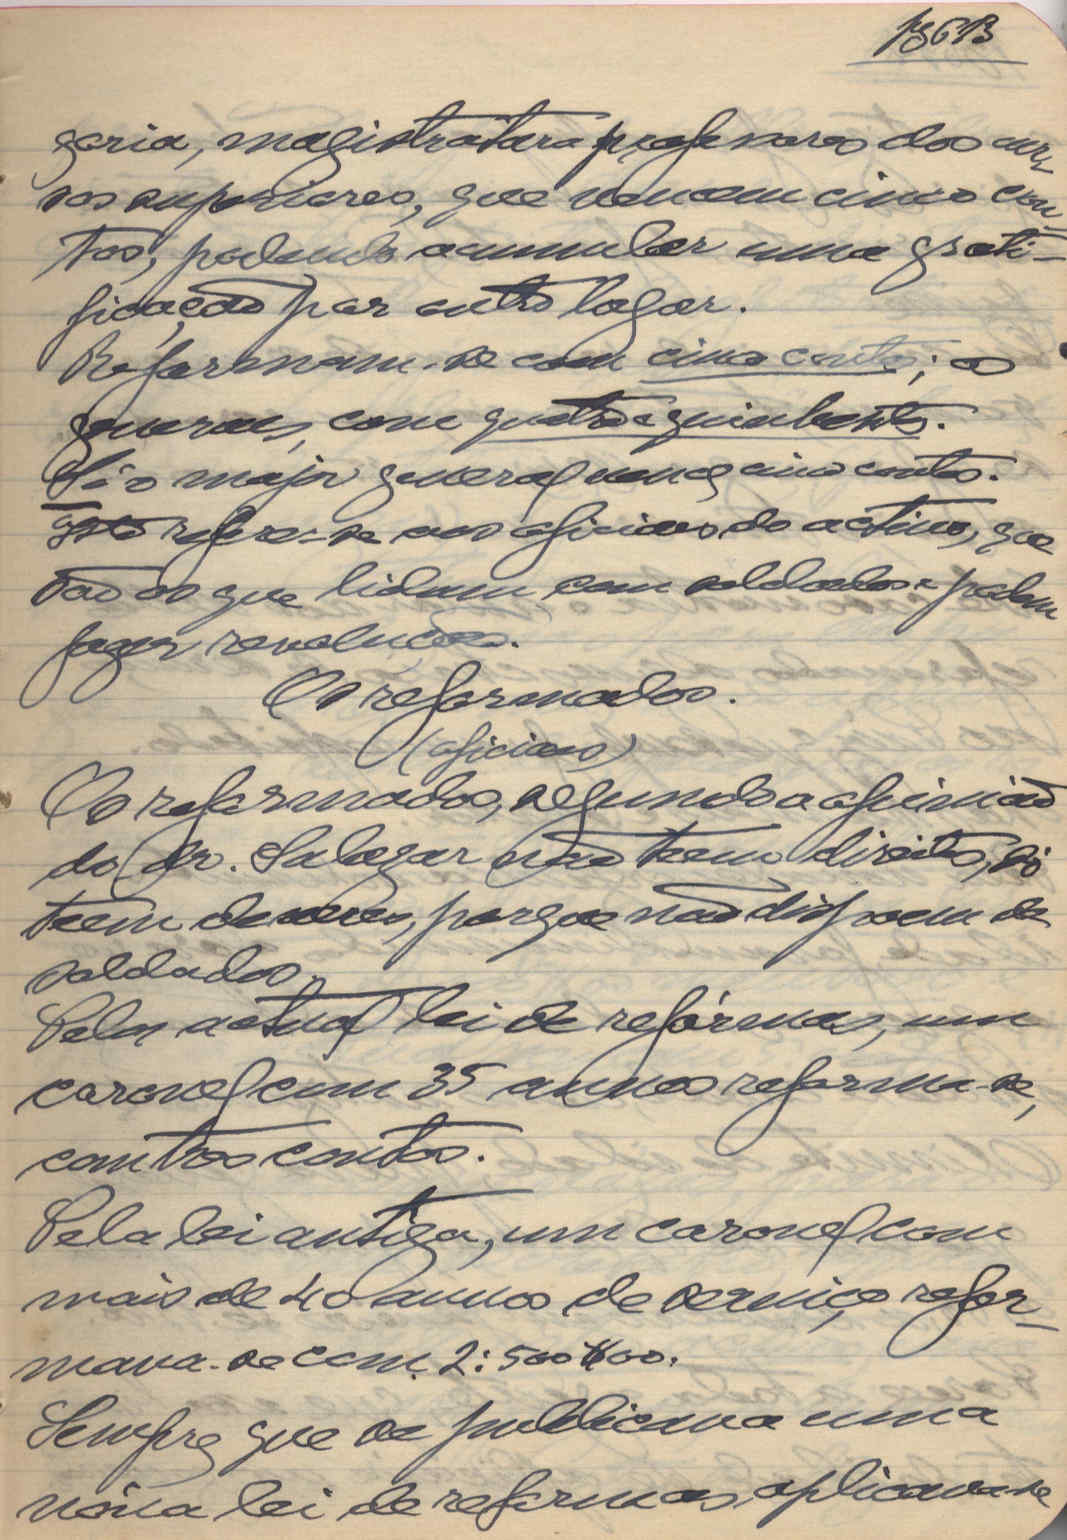 pg 6B
goria, magistratura professores dos cur-
sos superiores, que vencem cinco con-
tos, podendo acumular uma grati-
ficação por outro logar.
Reformam-se com cinco contos; os
generaes, com quatro e quinhentos.
Só o major general vence cinco contos.
Isto refere-se aos oficiaes do activo, que
são os que lidam com soldados e podem
fazer revoluções.
Os reformados.
(oficiaes)
Os reformados, segundo a opinião
do dr. Salazar não teem direitos, só
teem deveres, porque não dispoem de
soldados.
Pela actual lei de refórmas, um
coronel com 35 annos reforma-se,
com tres contos.
Pela lei antiga, um coronel com
mais de 40 annos de serviço refor-
mava-se com 2:500$00.
Sempre que se publicava uma
nóva lei de reformas, aplicava-se